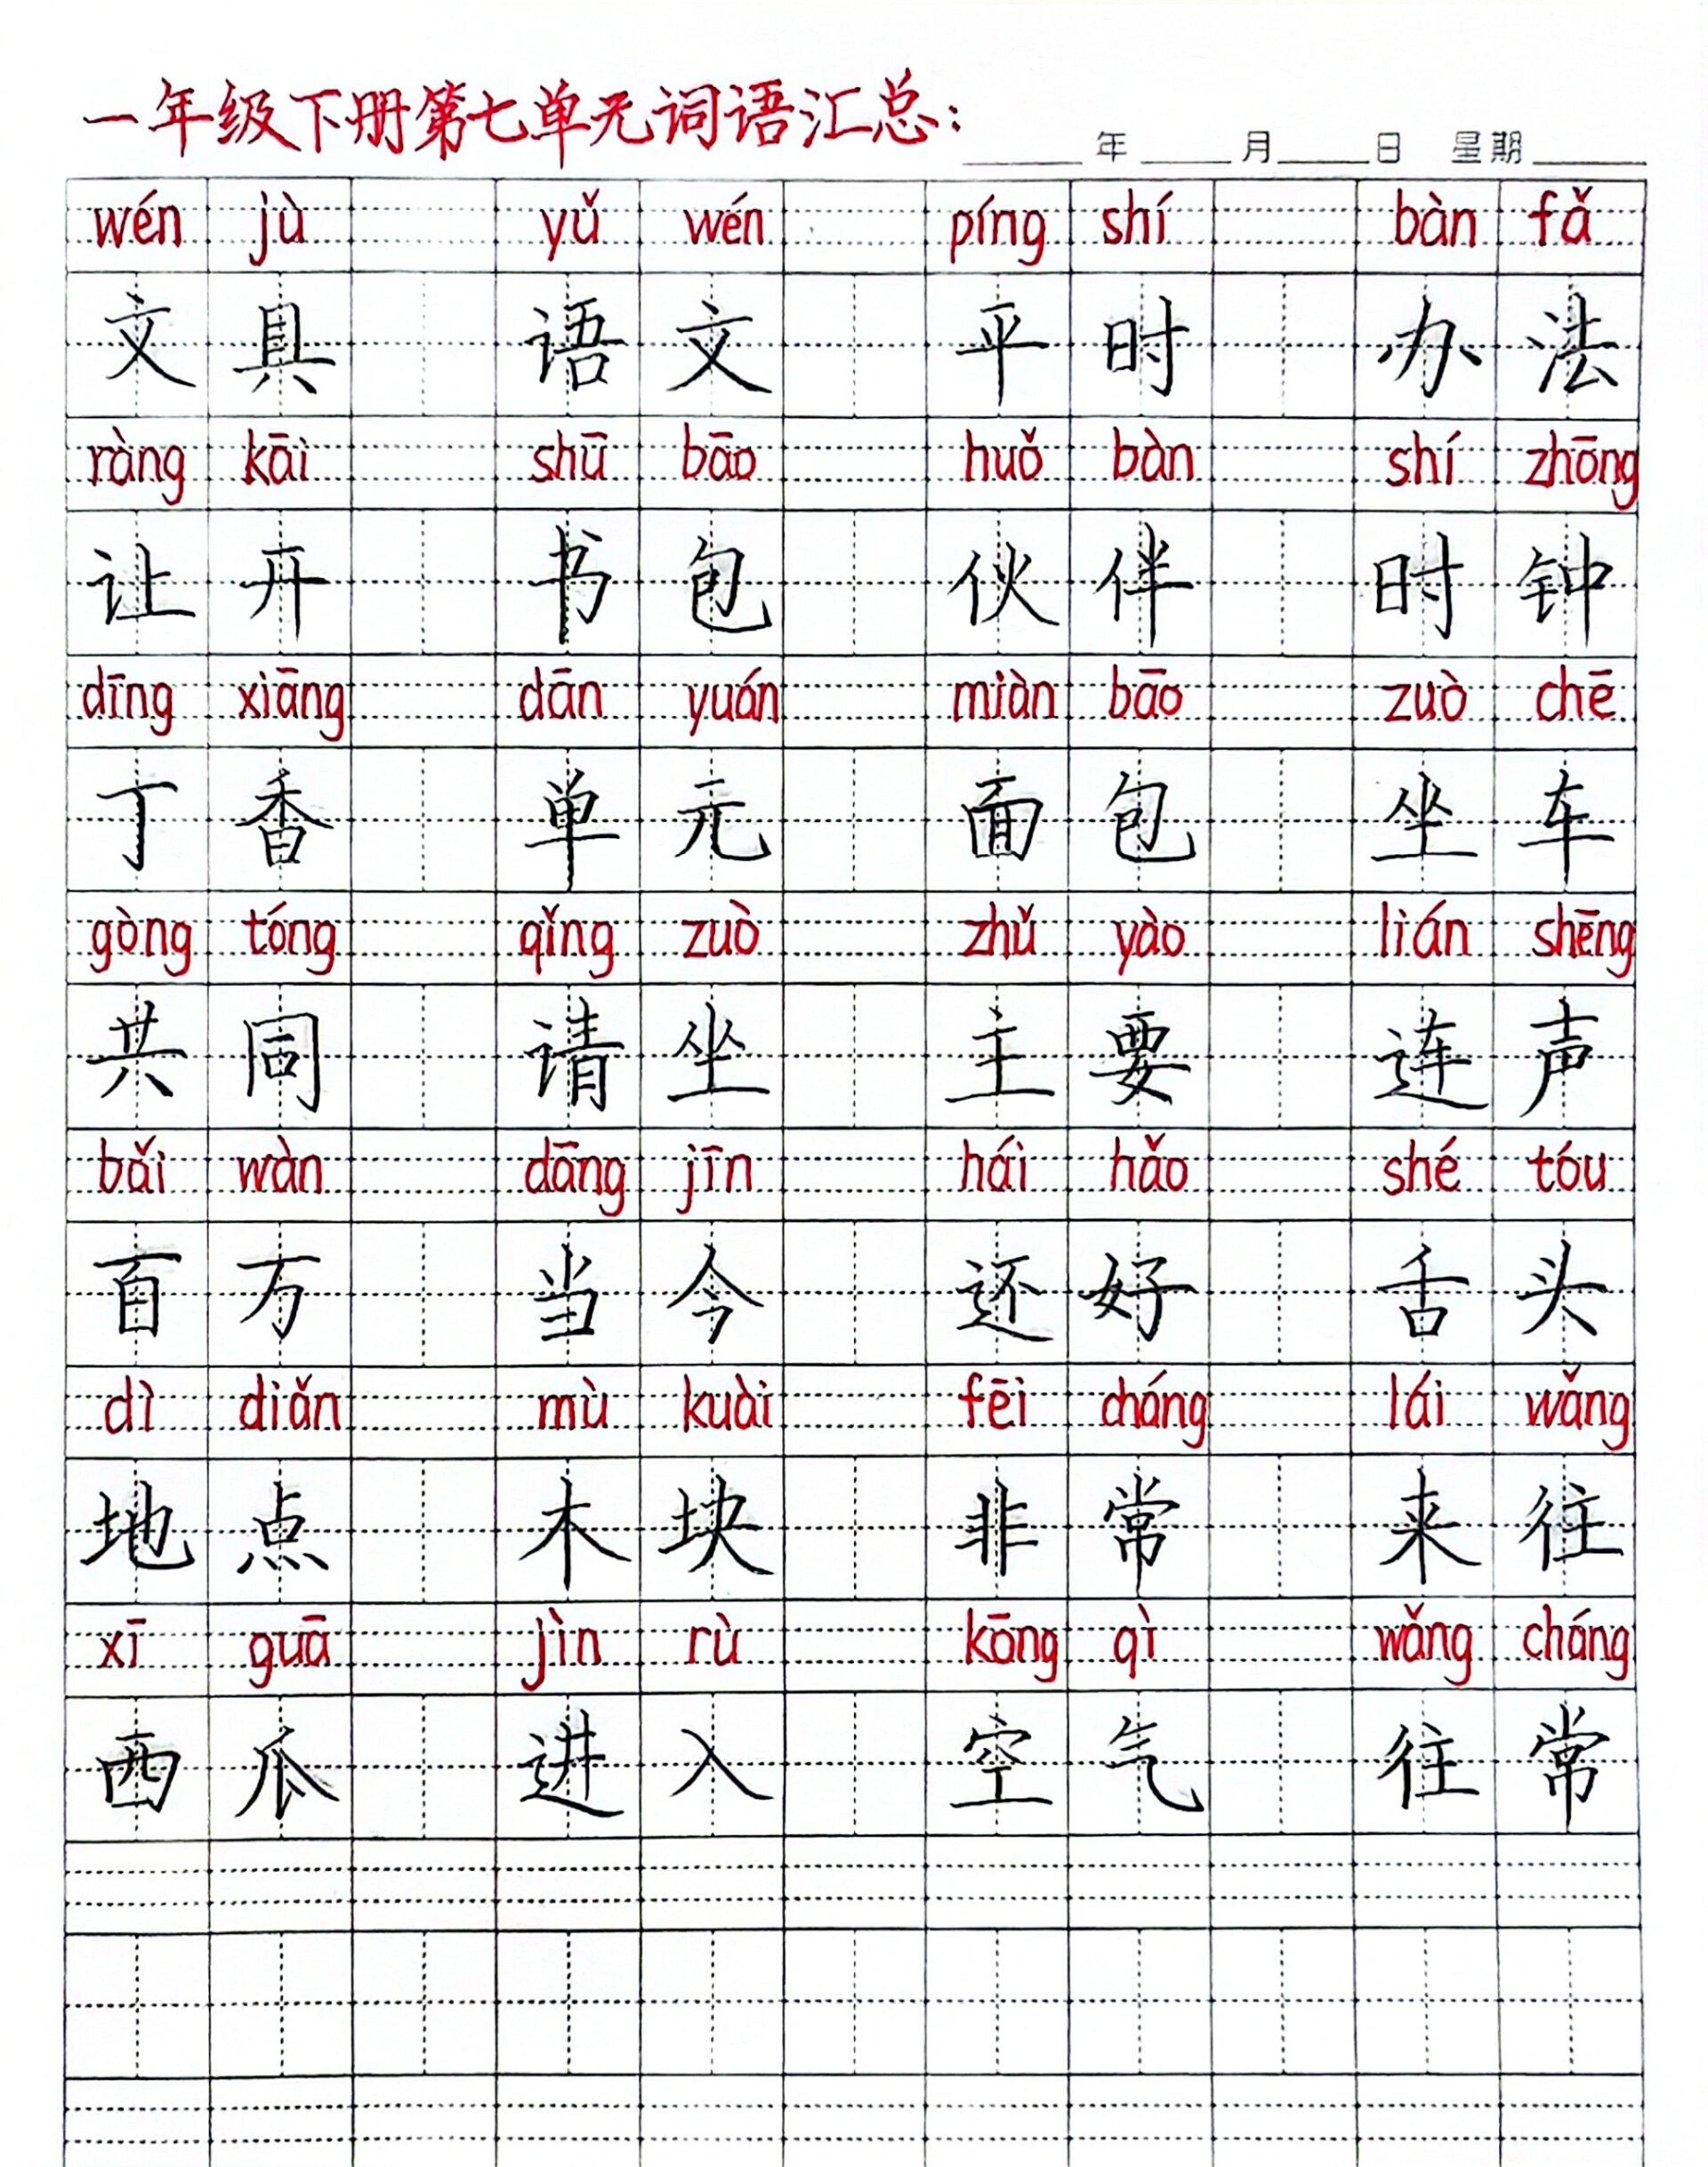 一年级下册第七单元词语汇总：
年 月 日 星期
wén jù yǔ wén píng shí bàn fǎ
文具 语文 平时 办法
ràng kāi shū bāo huǒ bàn shí zhōng
让开 书包 伙伴 时钟
dīng xiāng dān yuán miàn bāo zuò chē
丁香 单元 面包 坐车
gòng tóng qǐng zuò zhǔ yào lián shēng
共同 请坐 主要 连声
bǎi wàn dāng jīn hái hǎo shé tóu
百万 当今 还好 舌头
dì diǎn mù kuài fēi cháng lái wǎng
地点 木块 非常 来往
xī guā jìn rù kōng qì wǎng cháng
西瓜 进入 空气 往常